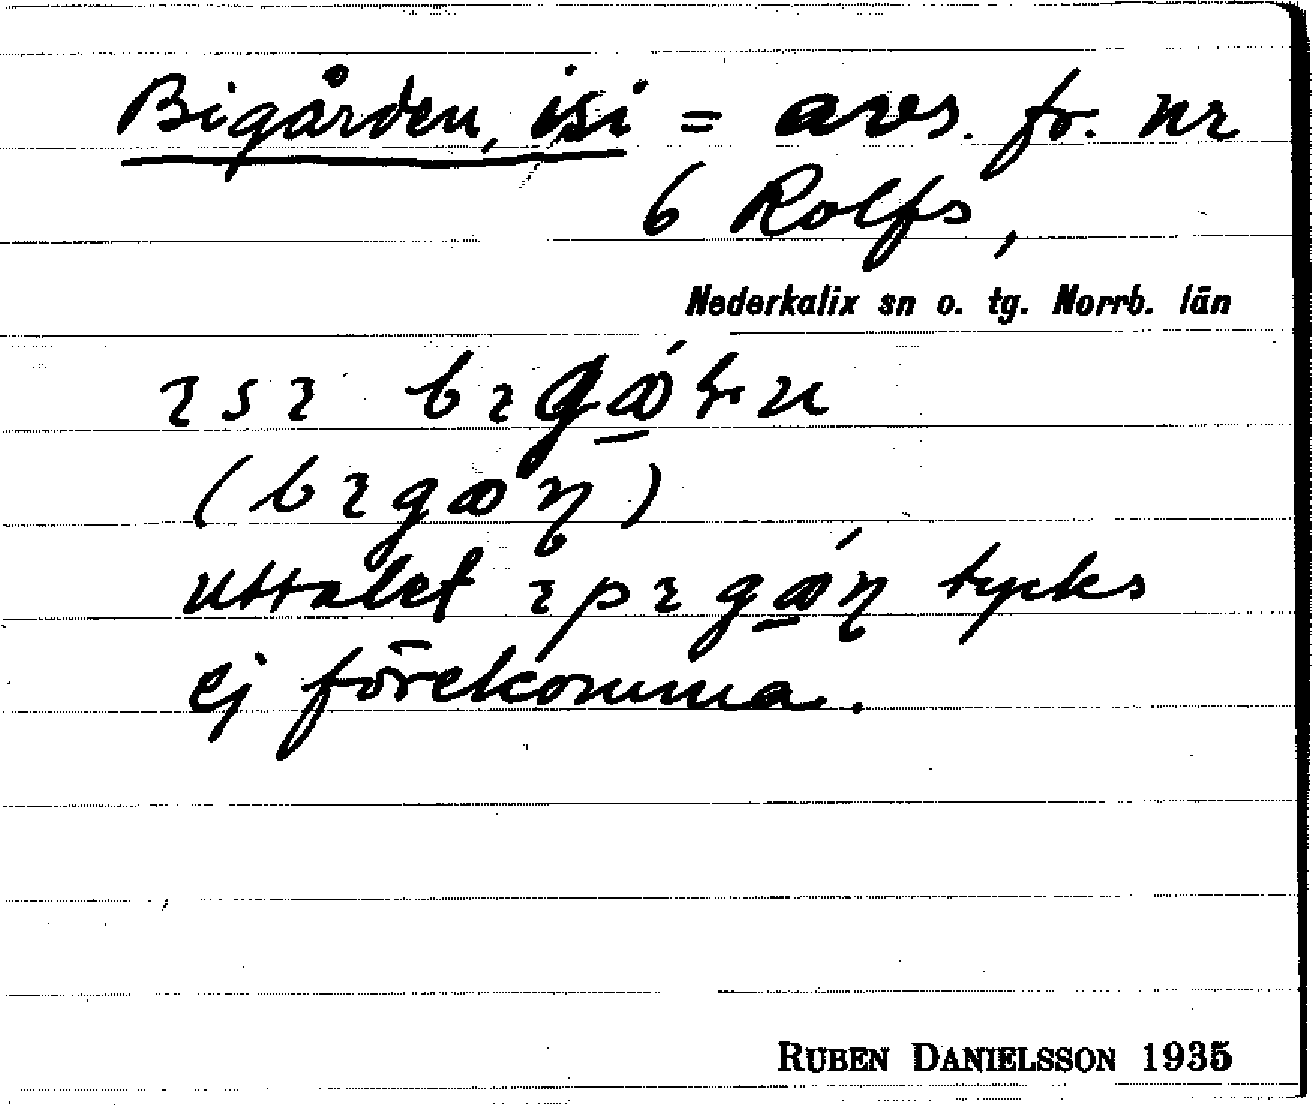 Bigården, isi = avs. fr. nr
6 Rolfs,
Nederkalix sn o. tg. Norrb. län
ısı bıgǻ̱h.n
(bıgaͦn̥)
uttalet ıpıgǻ̱n tycks
ej förekomma.
RUBEN DANIELSSON 1935